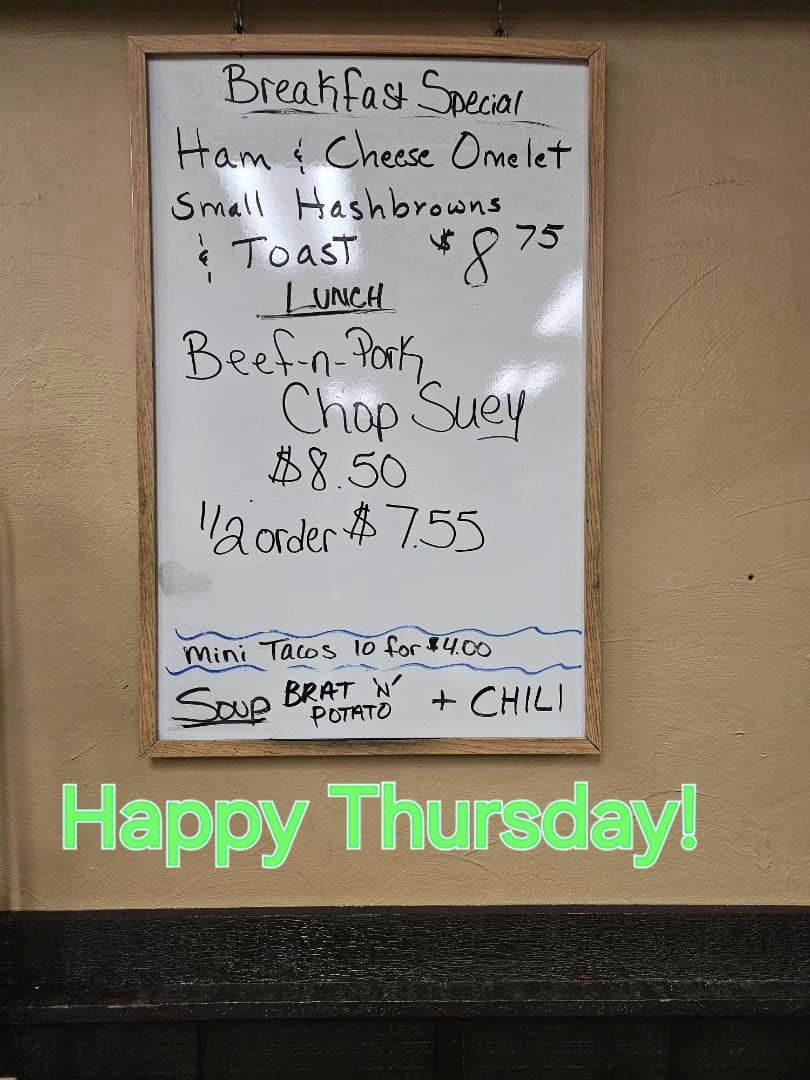 Breakfast Special
Ham & Cheese Omelet
Small Hashbrowns
& Toast $8 75
LUNCH
Beef-n-Pork
Chop Suey
$8.50
1/2 order $7.55
Mini Tacos 10 for $4.00
Soup BRAT 'N' POTATO + CHILI
Happy Thursday!